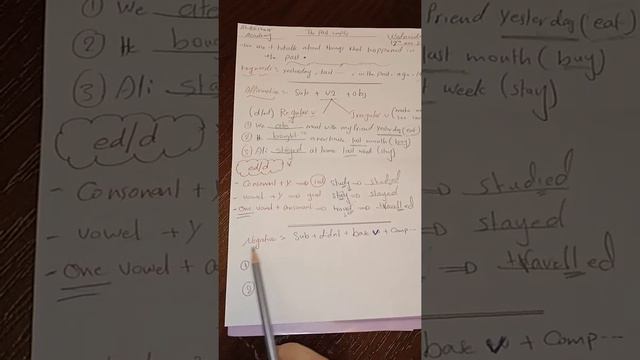 Academy The past simple Wednesday
- we use it to talk about things that happened in
the past.
Keywords = yesterday, last ...., in the past, ago
Affirmative = Sub + V2 + obj
(d/ed) Regular v Irregular v
① We ate meat with my friend yesterday (eat)
② He bought a new house last month (buy)
③ Ali stayed at home last week (stay)
ed/d
- Consonant + y => ied study => studied
- vowel + y => ed stay => stayed
- One vowel + consonant => travel => travelled
Negative = Sub + didn't + base v + Comp...
①
②
① We ate
② He boug
③ Ali sta
ed/d
- Consonant +
- vowel + y
- One vowel + c
friend yesterday (eat)
last month (buy)
t week (stay)
studied
=> stayed
=> travelled
base v + Comp...